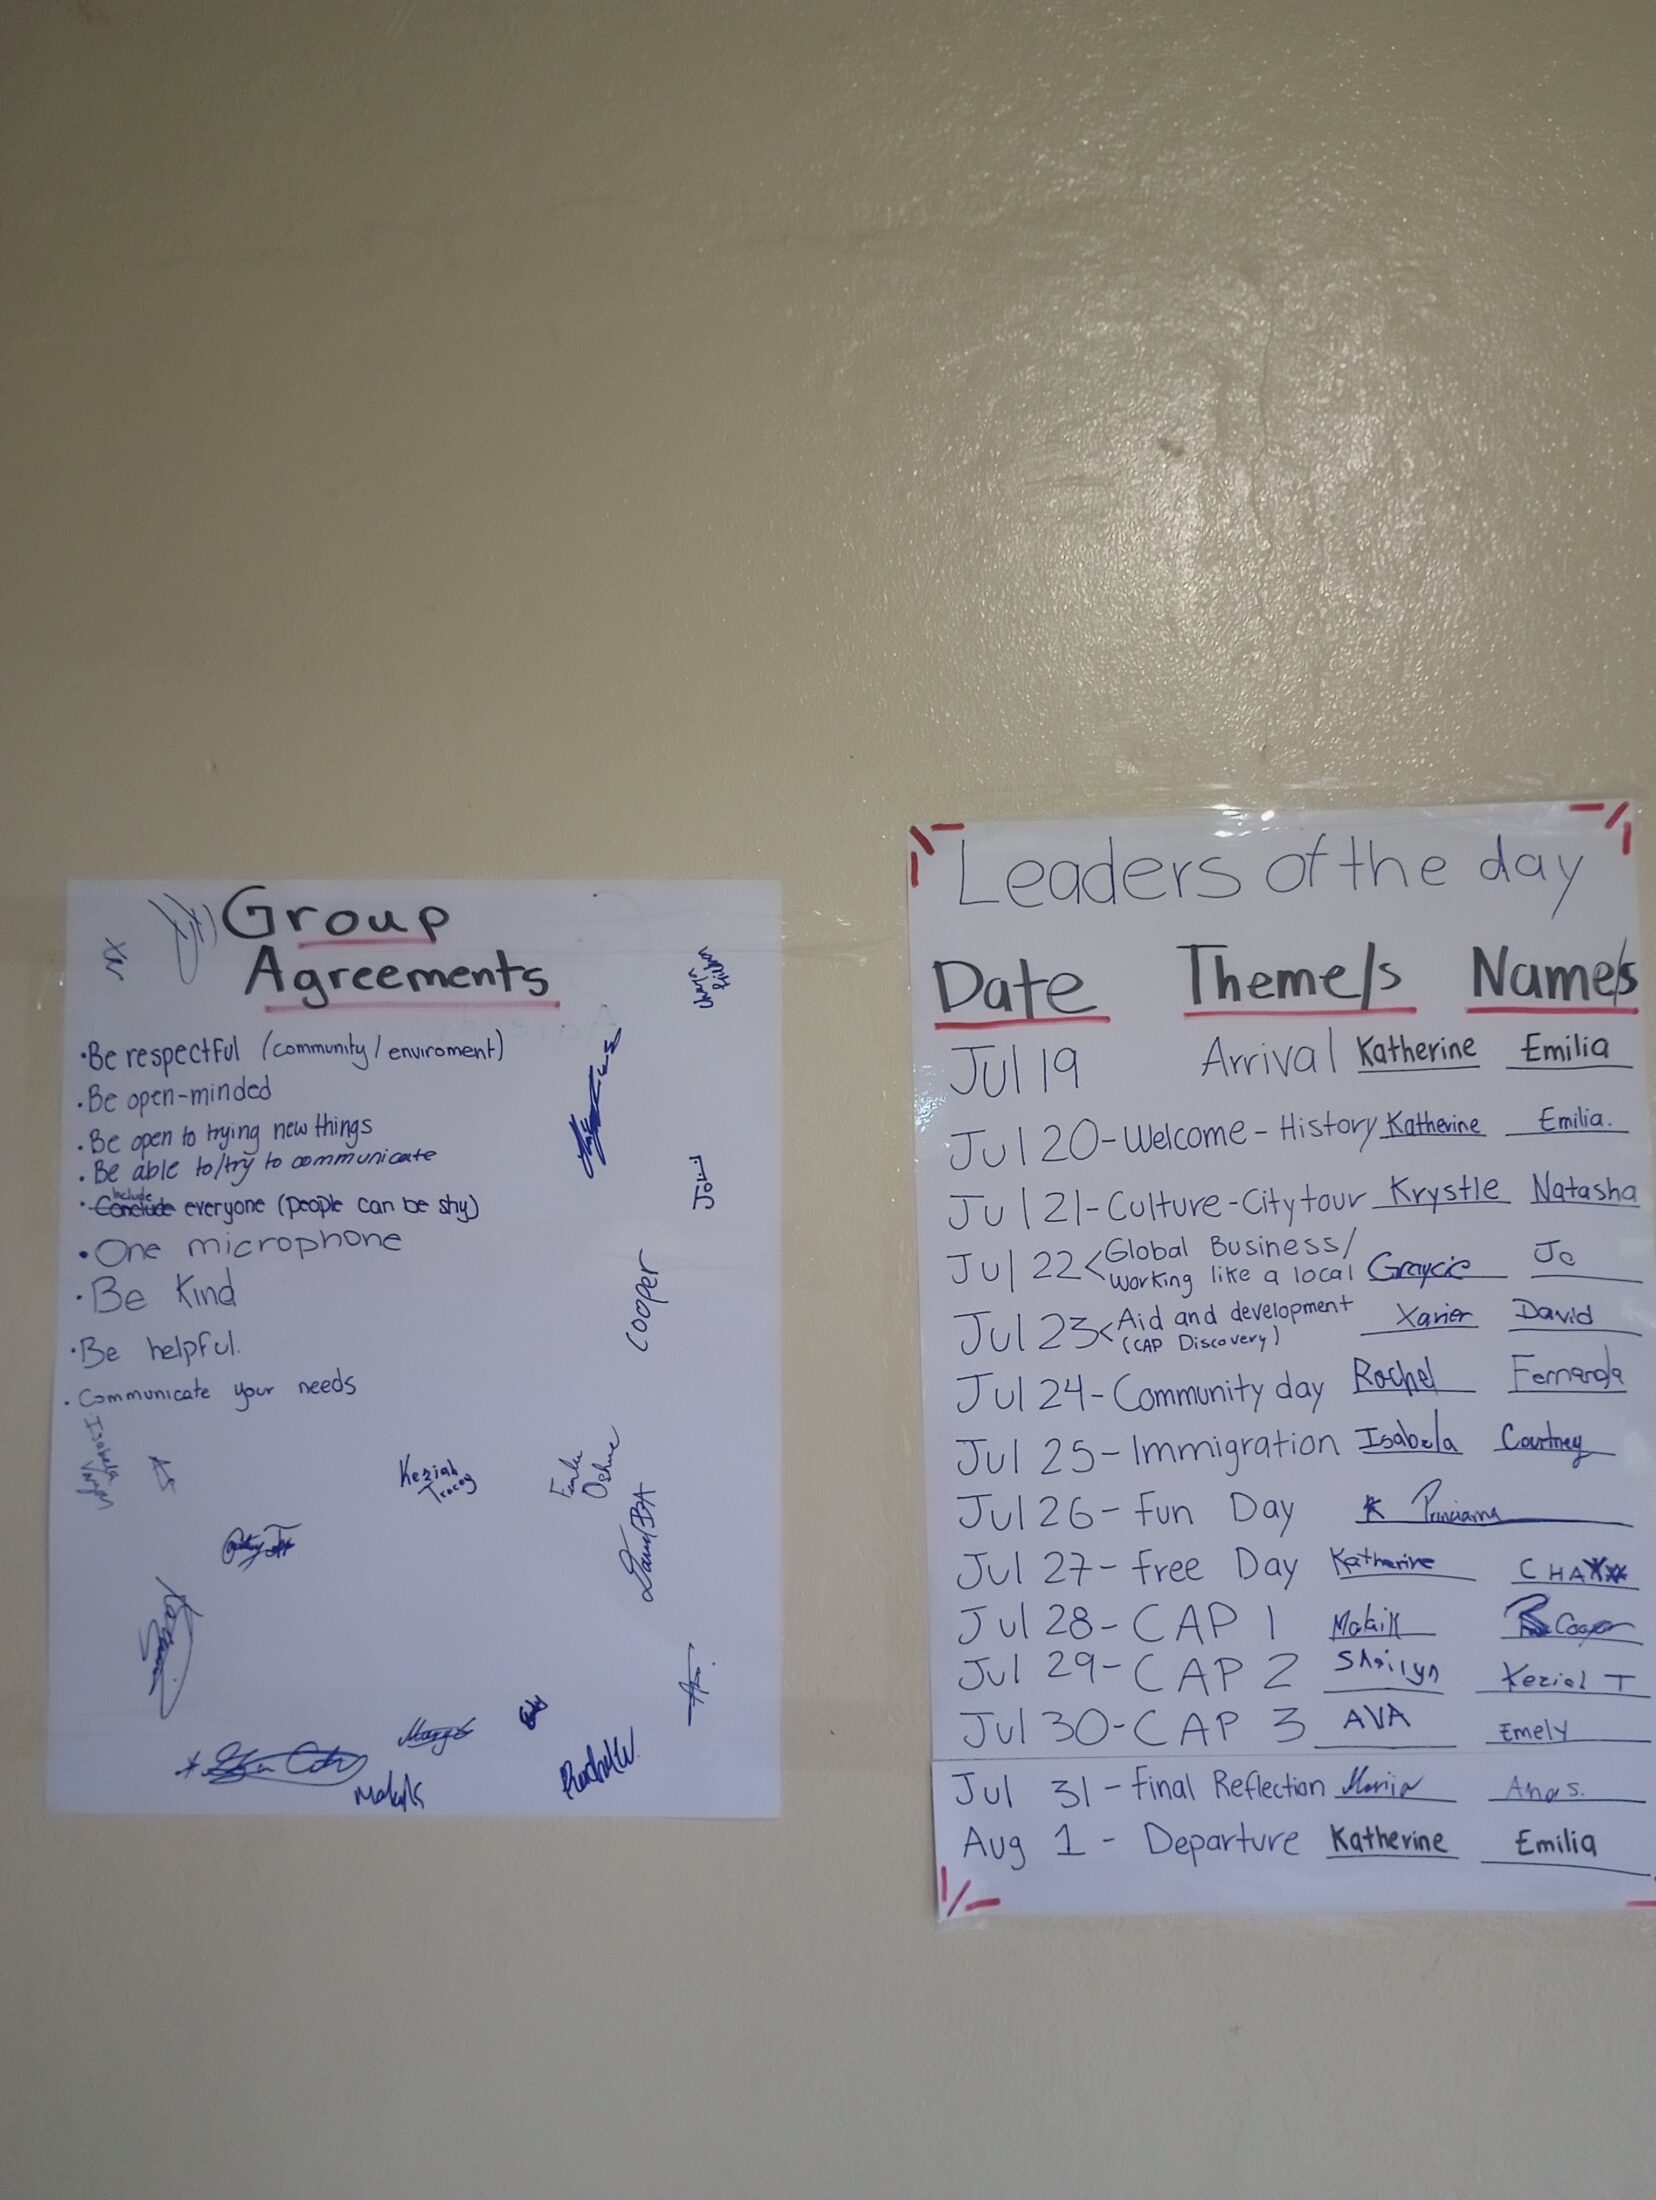 Group
Agreements
·Be respectful (community/enviroment)
·Be open-minded
·Be open to trying new things
·Be able to/try to communicate
include
·Conclude everyone (people can be shy)
·One microphone
·Be Kind
·Be helpful.
·Communicate your needs
Cooper
Keziah
Tracey
Isabela
Leaders of the day
Date Theme/s Name/s
Jul 19 Arrival Katherine Emilia
Jul 20-Welcome-History Katherine Emilia.
Jul 21-Culture-City tour Krystle Natasha
Jul 22<Global Business/
Working like a local Graycie Jo
Jul 23<Aid and development
(CAP Discovery) Xavier David
Jul 24-Community day Rachel Fernanda
Jul 25-Immigration Isabela Courtney
Jul 26-Fun Day
Jul 27-Free Day Katherine
Jul 28-CAP 1 Cooper
Jul 29-CAP 2 Shailyn Keziah T
Jul 30-CAP 3 AVA Emely
Jul 31-Final Reflection Ana S.
Aug 1-Departure Katherine Emilia